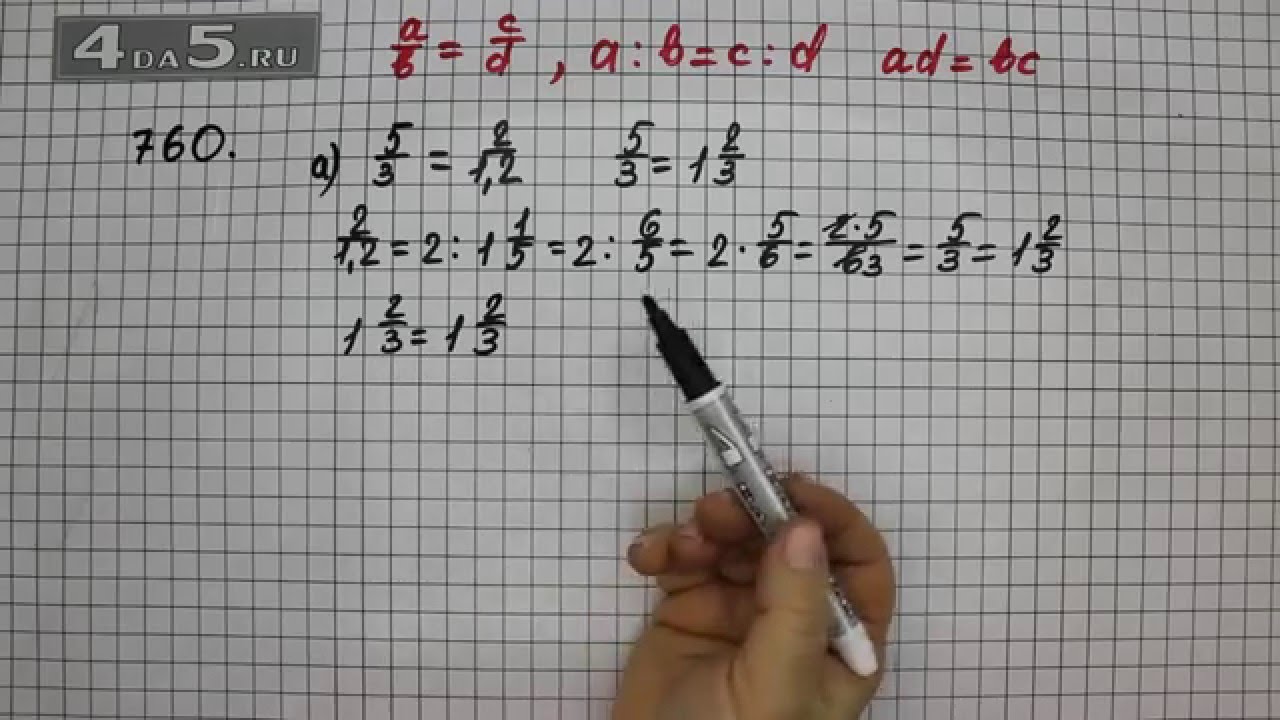 4DA5.RU
a/b = c/d , a : b = c : d ad = bc
760. а) 5/3 = 2/1,2 5/3 = 1 2/3
2/1,2 = 2 : 1 1/5 = 2 : 6/5 = 2 · 5/6 = 2·5/6 3 = 5/3 = 1 2/3
1 2/3 = 1 2/3